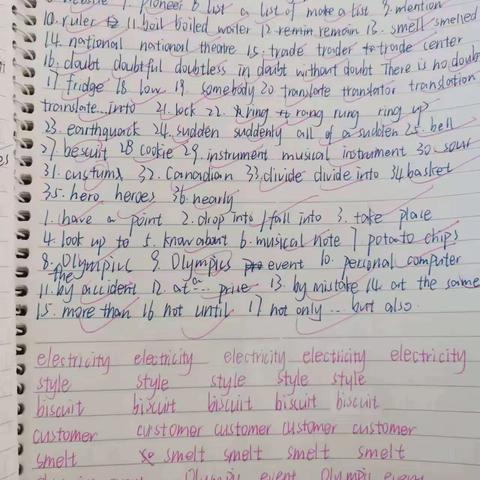 pioneer 6. list a list of make a list 9. mention
10. ruler 11. boil boiled water 12. remin remain 13. smell smelled
14. national national theatre 15. trade trader trade center
16. doubt doubtful doubtless in doubt without doubt There is no doubt
17 fridge 18 low 19. somebody 20 translate translator translation
translate...into 21. lock 22. ring rang rung ring up
23. earthquark 24. sudden suddenly all of a sudden 25. bell
27. bescuit 28 cookie 29. instrument musical instrument 30. sour
31. custums 32. Canadian 33. divide divide into 34. basket
35. hero heroes 36. nearly
1. have a point 2. drop into / fall into 3. take place
4. look up to 5. know about 6. musical note 7 potato chips
8. Olympic 9. Olympics event 10. personal computer
11. by accident 12. at a... price 13. by mistake 14. at the same
15. more than 16 not until 17 not only... but also.
electricity electricity electricity electricity electricity
style style style style style
biscuit biscuit biscuit biscuit biscuit
customer customer customer customer customer
smelt smelt smelt smelt smelt
Olympic event Olympic event